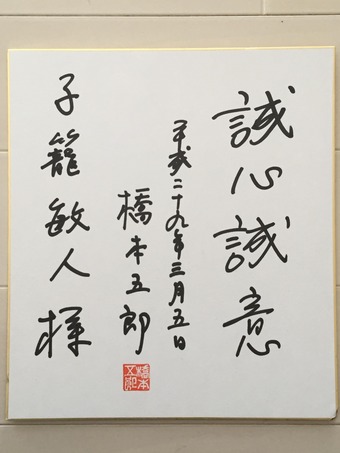 誠心誠意
平成二十九年三月五日
橋本五郎
子籠敏人様
橋本
五郎